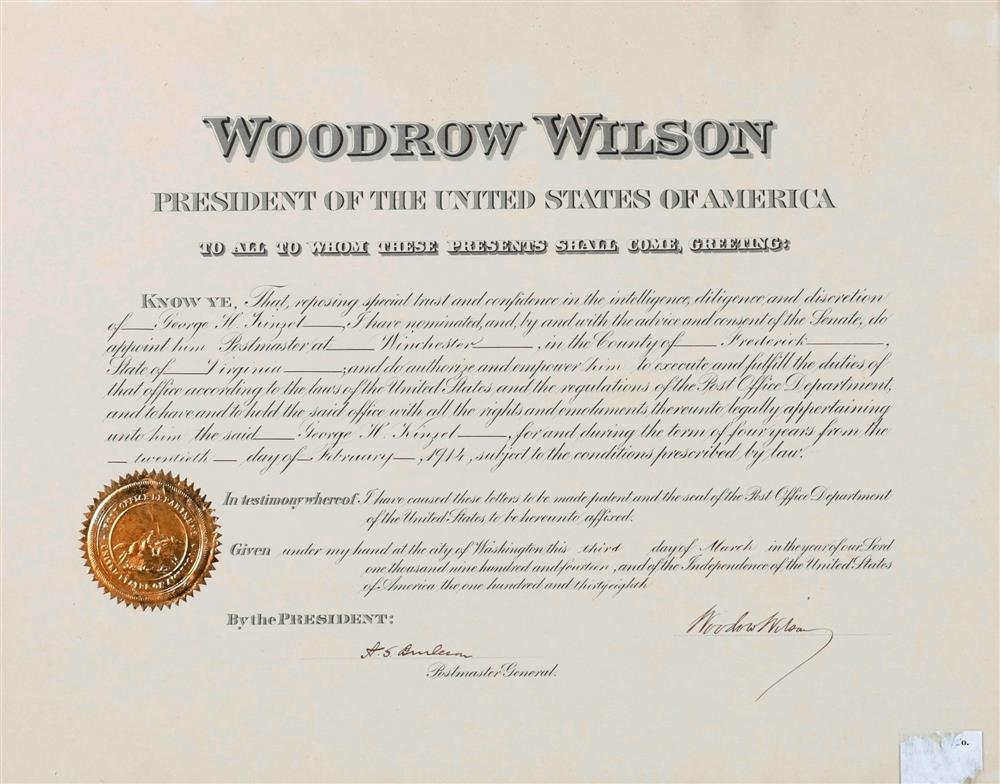 WOODROW WILSON
PRESIDENT OF THE UNITED STATES OF AMERICA
TO ALL TO WHOM THESE PRESENTS SHALL COME, GREETING:
KNOW YE, That, reposing special trust and confidence in the intelligence, diligence, and discretion
of George H. Kinzel, I have nominated, and, by and with the advice and consent of the Senate, do
appoint him Postmaster at Winchester, in the County of Frederick,
State of Virginia; and do authorize and empower him to execute and fulfill the duties of
that office according to the laws of the United States and the regulations of the Post Office Department,
and to have and to hold the said office with all the rights and emoluments thereunto legally appertaining
unto him the said George H. Kinzel, for and during the term of four years from the
twentieth day of February, 1914, subject to the conditions prescribed by law.
In testimony whereof I have caused these letters to be made patent and the seal of the Post Office Department
of the United States to be hereunto affixed.
Given under my hand at the city of Washington this third day of March in the year of our Lord
one thousand nine hundred and fourteen, and of the Independence of the United States
of America the one hundred and thirtyeighth
By the PRESIDENT:
Woodrow Wilson
A. S. Burleson
Postmaster General.
POST OFFICE DEPARTMENT
UNITED STATES OF AMERICA
o.